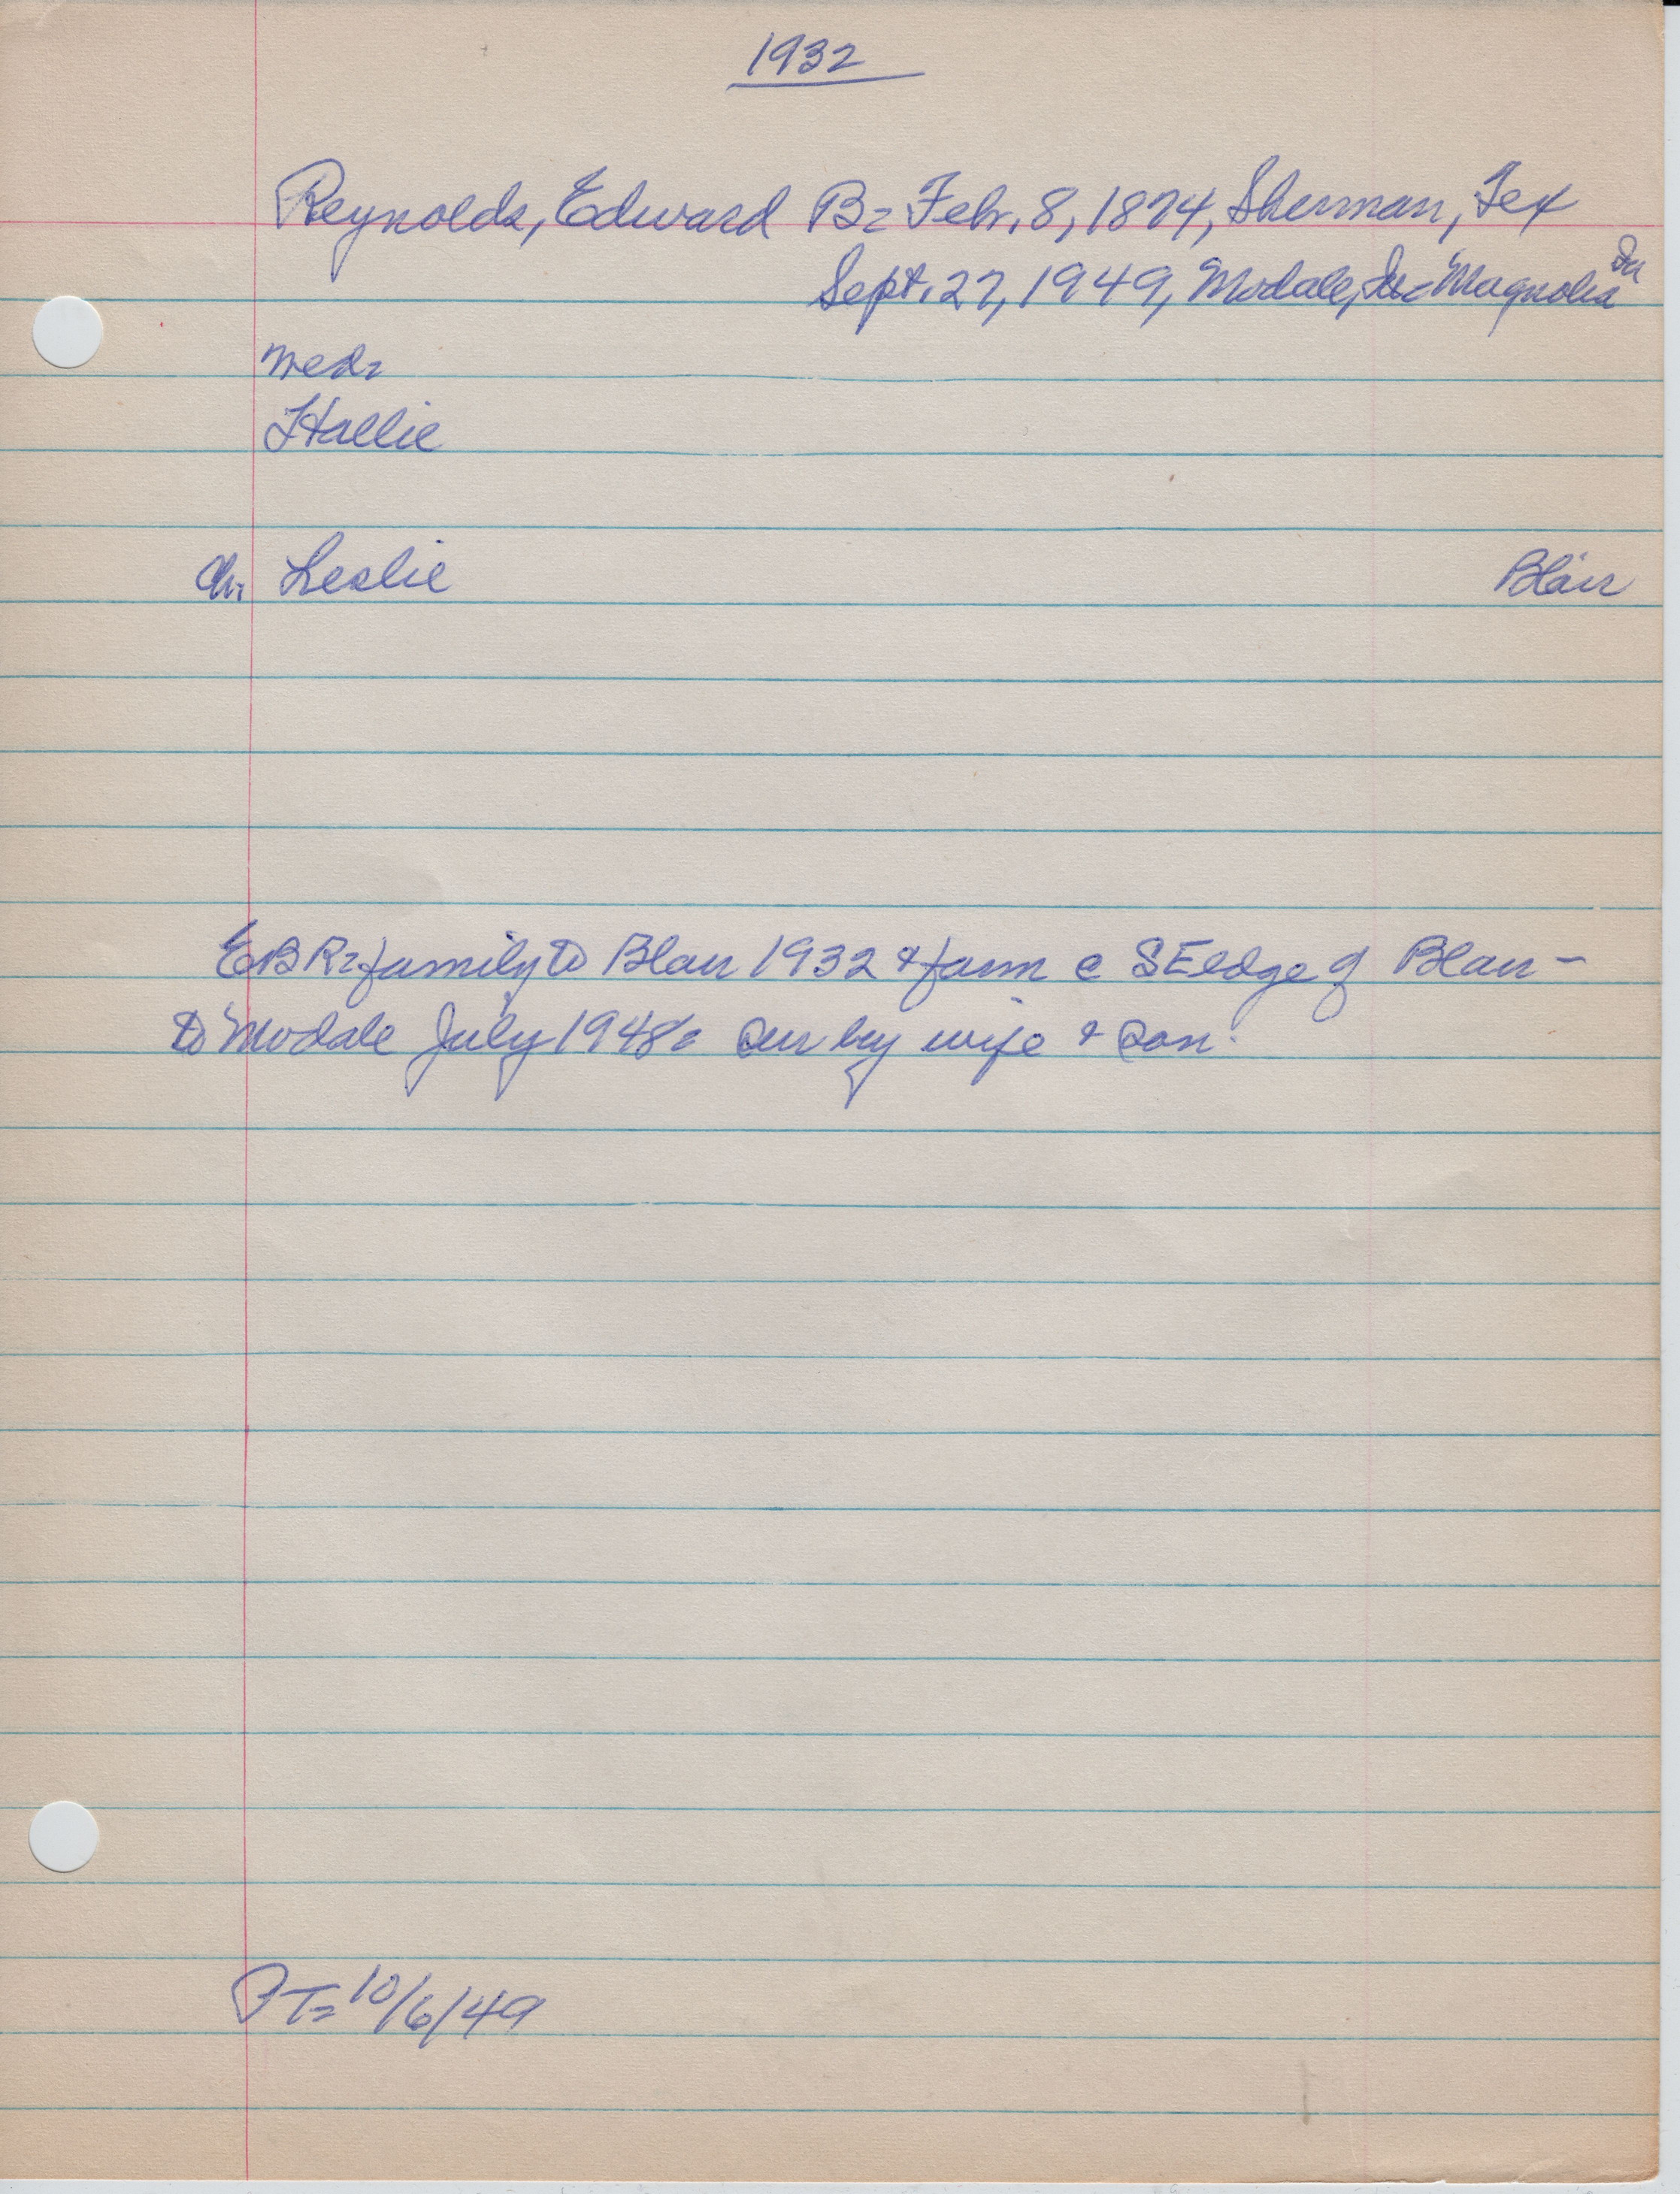 1932
Reynolds, Edward B= Febr. 8, 1874, Sherman, Tex
Sept. 27, 1949, Modale, Ia= Magnolia Ia
med=
Hallie
ch. Leslie Blair
EBR= family to Blair 1932 & farm @ SE edge of Blair -
to Modale July 1948= sur by wife & son.
PT= 10/6/49